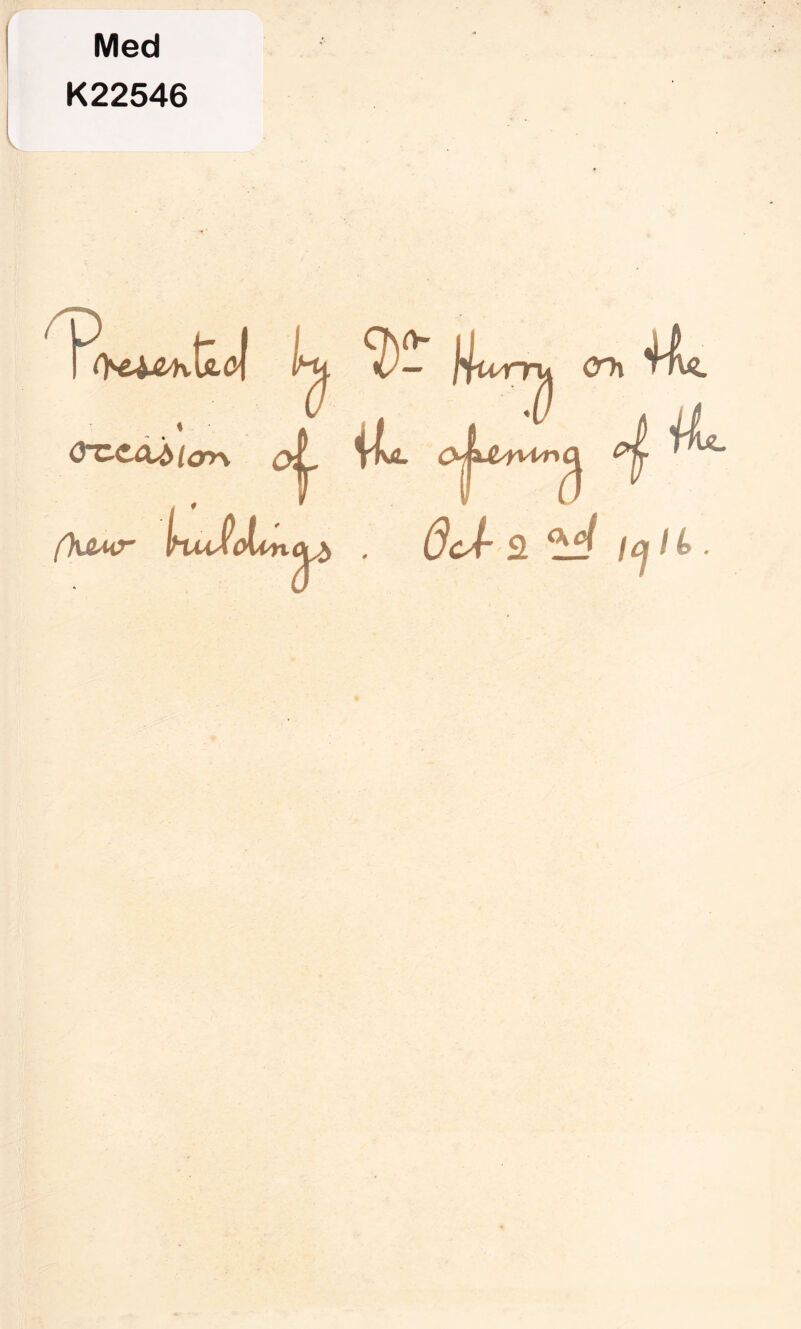 Med
K22546
Presented by Dr Hurry on the
occasion of the opening of the
new buildings. Oct 2nd 1916.